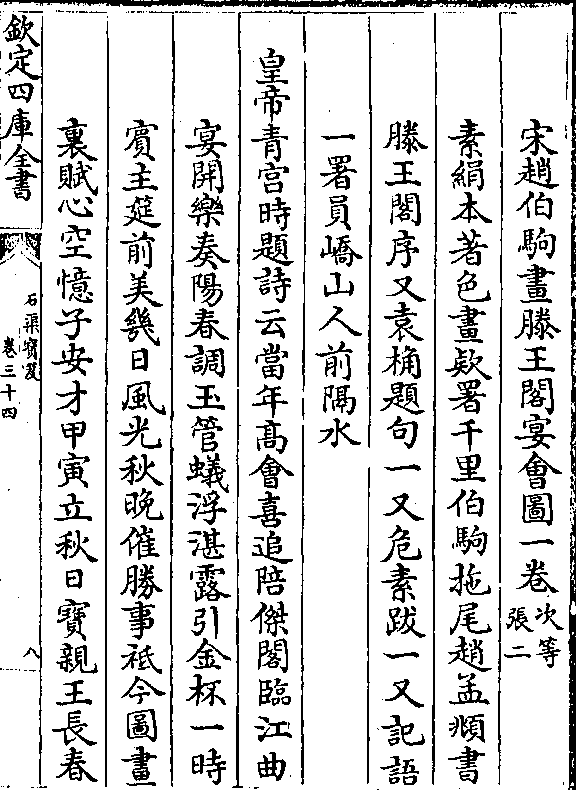 宋趙伯駒畫滕王閣宴會圖一卷次等張二
素絹本著色畫欵署千里伯駒拖尾趙孟頫書
滕王閣序又袁桷題句一又危素跋一又記語
一署員嶠山人前隔水
皇帝青宫時題詩云當年髙會喜追陪傑閣臨江曲
宴開樂奏陽春調玉管蟻浮湛露引金杯一時
賓主筵前美幾日風光秋晩催勝事祗今圖畫
裏賦心空憶子安才甲寅立秋日寶親王長春
欽定四庫全書
石渠寶笈
卷三十四
八